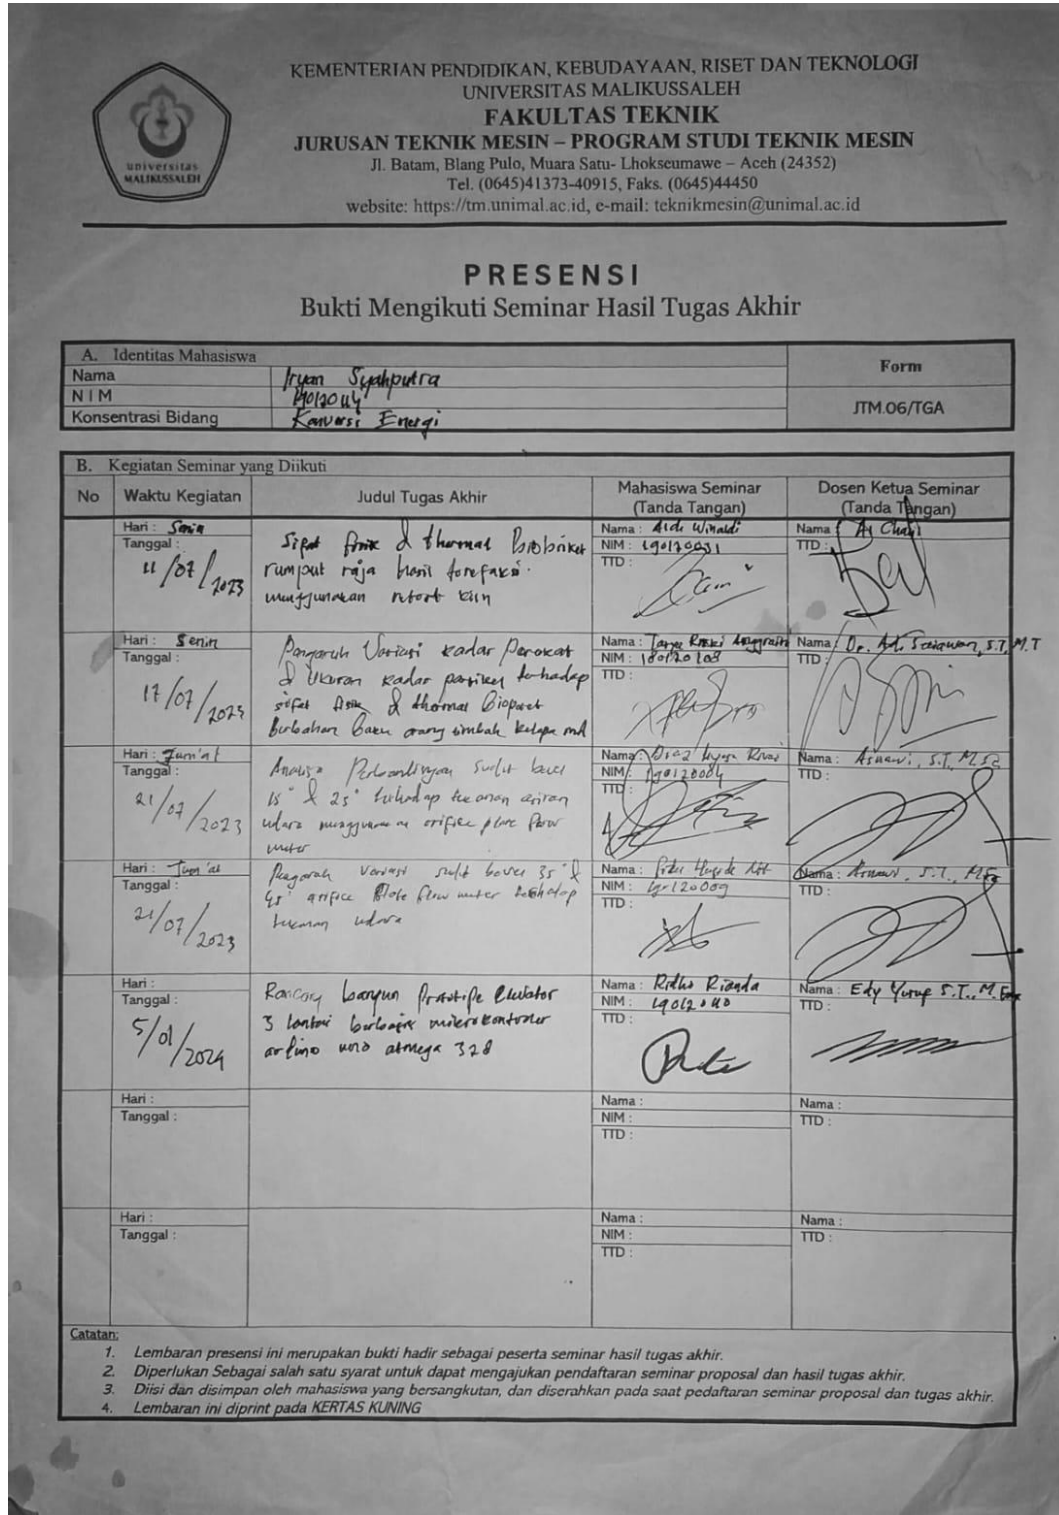 universitas
MALIKUSSALEH
KEMENTERIAN PENDIDIKAN, KEBUDAYAAN, RISET DAN TEKNOLOGI
UNIVERSITAS MALIKUSSALEH
FAKULTAS TEKNIK
JURUSAN TEKNIK MESIN – PROGRAM STUDI TEKNIK MESIN
Jl. Batam, Blang Pulo, Muara Satu- Lhokseumawe – Aceh (24352)
Tel. (0645)41373-40915, Faks. (0645)44450
website: https://tm.unimal.ac.id, e-mail: teknikmesin@unimal.ac.id
PRESENSI
Bukti Mengikuti Seminar Hasil Tugas Akhir
A. Identitas Mahasiswa
Form
Nama Iryan Syahputra
NIM
Konsentrasi Bidang Konversi Energi
JTM.06/TGA
B. Kegiatan Seminar yang Diikuti
No Waktu Kegiatan Judul Tugas Akhir Mahasiswa Seminar (Tanda Tangan) Dosen Ketua Seminar (Tanda Tangan)
Hari : Senin
Tanggal :
11/07/2023
Sifat fisik & thermal Biobriket
rumput raja hasil torefaksi
menggunakan retort kiln
Nama : Aldi Winaldi
NIM : 190120031
TTD :
Nama :
TTD :
Hari : Senin
Tanggal :
17/07/2023
Pengaruh Variasi kadar Perekat
& Ukuran kadar partikel terhadap
sifat fisik & thermal Biopelet
Berbahan Baku
Nama :
NIM : 180120108
TTD :
Nama : Dr. Adi Setiawan, S.T, M.T
TTD :
Hari : Jum'at
Tanggal :
21/07/2023
Analisa Perbandingan Sudut bevel
15° & 25° terhadap tekanan aliran
udara menggunakan orifice plate flow
meter
Nama :
NIM : 190120084
TTD :
Nama : Asnawi, S.T., M.Sc
TTD :
Hari : Jum'at
Tanggal :
21/07/2023
Pengaruh variasi sudut bevel 35° &
45° orifice Plate flow meter terhadap
tekanan udara
Nama :
NIM :
TTD :
Nama : Asnawi, S.T., M.Sc
TTD :
Hari :
Tanggal :
5/01/2024
Rancang bangun Prototipe Elevator
3 lantai berbasis mikrokontroler
arduino uno atmega 328
Nama : Ridho Rianda
NIM :
TTD :
Nama : Edy Yusuf S.T., M.Eng
TTD :
Hari :
Tanggal :
Nama :
NIM :
TTD :
Nama :
TTD :
Hari :
Tanggal :
Nama :
NIM :
TTD :
Nama :
TTD :
Catatan:
1. Lembaran presensi ini merupakan bukti hadir sebagai peserta seminar hasil tugas akhir.
2. Diperlukan Sebagai salah satu syarat untuk dapat mengajukan pendaftaran seminar proposal dan hasil tugas akhir.
3. Diisi dan disimpan oleh mahasiswa yang bersangkutan, dan diserahkan pada saat pedaftaran seminar proposal dan tugas akhir.
4. Lembaran ini diprint pada KERTAS KUNING